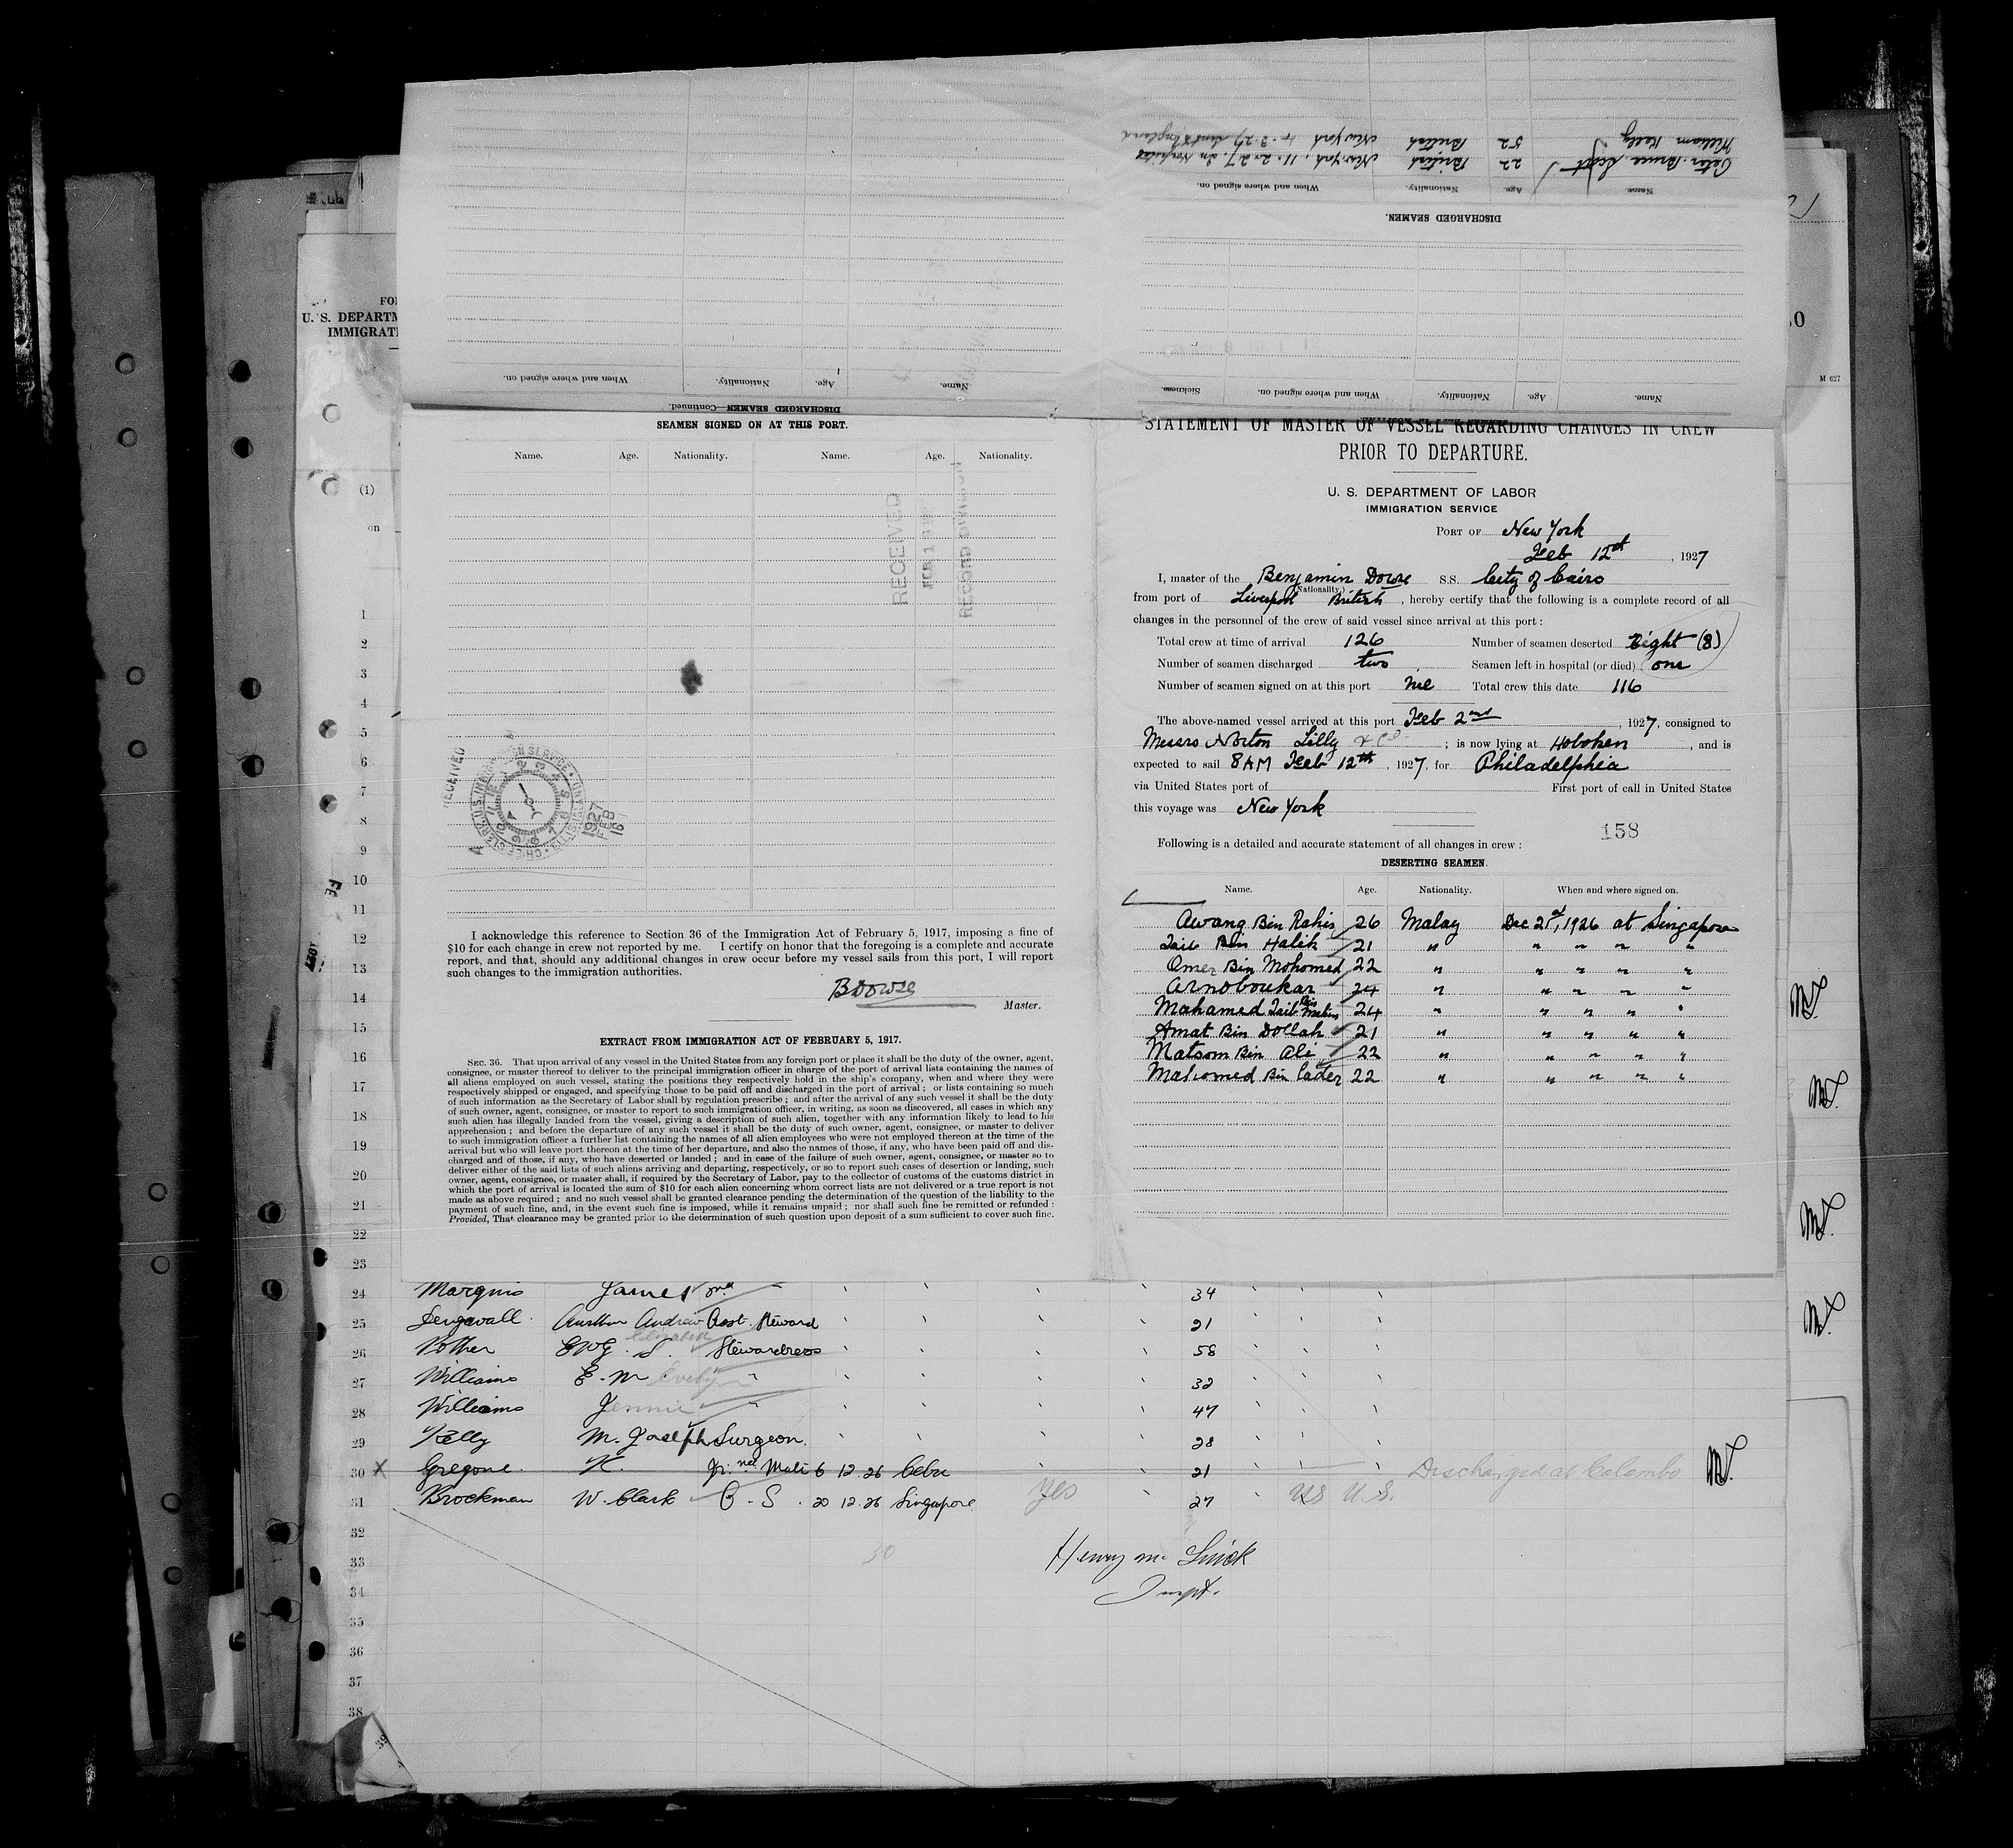 William Kelly 52 British New York
Peter Bruce Scott 22 British New York 11.2.27. In Hospital
Name. Age. Nationality. When and where signed on.
DISCHARGED SEAMEN.
Name. Age. Nationality. When and where signed on. Sickness.
Name. Age. Nationality. When and where signed on.
DISCHARGED SEAMEN—Continued.
U. S. DEPARTM
IMMIGRATI
M 627
(1)
on
SEAMEN SIGNED ON AT THIS PORT.
Name. Age. Nationality. Name. Age. Nationality.
RECEIVED
RECORD DIVISION
RECEIVED
1927
FEB
16
I acknowledge this reference to Section 36 of the Immigration Act of February 5, 1917, imposing a fine of
$10 for each change in crew not reported by me. I certify on honor that the foregoing is a complete and accurate
report, and that, should any additional changes in crew occur before my vessel sails from this port, I will report
such changes to the immigration authorities.
B Dowse
Master.
EXTRACT FROM IMMIGRATION ACT OF FEBRUARY 5, 1917.
SEC. 36. That upon arrival of any vessel in the United States from any foreign port or place it shall be the duty of the owner, agent,
consignee, or master thereof to deliver to the principal immigration officer in charge of the port of arrival lists containing the names of
all aliens employed on such vessel, stating the positions they respectively hold in the ship's company, when and where they were
respectively shipped or engaged, and specifying those to be paid off and discharged in the port of arrival; or lists containing so much
of such information as the Secretary of Labor shall by regulation prescribe; and after the arrival of any such vessel it shall be the duty
of such owner, agent, consignee, or master to report to such immigration officer, in writing, as soon as discovered, all cases in which any
such alien has illegally landed from the vessel, giving a description of such alien, together with any information likely to lead to his
apprehension; and before the departure of any such vessel it shall be the duty of such owner, agent, consignee, or master to deliver
to such immigration officer a further list containing the names of all alien employees who were not employed thereon at the time of the
arrival but who will leave port thereon at the time of her departure, and also the names of those, if any, who have been paid off and dis-
charged and of those, if any, who have deserted or landed; and in case of the failure of such owner, agent, consignee, or master so to
deliver either of the said lists of such aliens arriving and departing, respectively, or so to report such cases of desertion or landing, such
owner, agent, consignee, or master shall, if required by the Secretary of Labor, pay to the collector of customs of the customs district in
which the port of arrival is located the sum of $10 for each alien concerning whom correct lists are not delivered or a true report is not
made as above required; and no such vessel shall be granted clearance pending the determination of the question of the liability to the
payment of such fine, and, in the event such fine is imposed, while it remains unpaid; nor shall such fine be remitted or refunded:
Provided, That clearance may be granted prior to the determination of such question upon deposit of a sum sufficient to cover such fine.
STATEMENT OF MASTER OF VESSEL REGARDING CHANGES IN CREW
PRIOR TO DEPARTURE.
U. S. DEPARTMENT OF LABOR
IMMIGRATION SERVICE
PORT OF New York
Feb 12th, 1927
I, master of the Benjamin Dowse S.S. City of Cairo
(Nationality.)
from port of Liverpool British, hereby certify that the following is a complete record of all
changes in the personnel of the crew of said vessel since arrival at this port:
Total crew at time of arrival 126 Number of seamen deserted Eight (8)
Number of seamen discharged two Seamen left in hospital (or died) one
Number of seamen signed on at this port nil Total crew this date 116
The above-named vessel arrived at this port Feb 2nd, 1927, consigned to
Messrs Norton Lilly & Co; is now lying at Hoboken, and is
expected to sail 8 AM Feb 12th, 1927, for Philadelphia
via United States port of First port of call in United States
this voyage was New York
158
Following is a detailed and accurate statement of all changes in crew:
DESERTING SEAMEN.
Name. Age. Nationality. When and where signed on.
Awang Bin Rahin 26 Malay Dec 21st, 1926 at Singapore
Taib Bin Halik 21 " " " " "
Omer Bin Mohomed 22 " " " " "
Arnoboukar 24 " " " " "
Mahamed Taib Bin Matin 24 " " " " "
Amat Bin Dollah 21 " " " " "
Matsom Bin Ali 22 " " " " "
Mahomed Bin Cader 22 " " " " "
1
2
3
4
5
6
7
8
9
10
11
12
13
14
15
16
17
18
19
20
21
22
23
24 Marquis James 34
25 Arthur Andrew Asst. Steward 21
26 Stewardess 58
27 Williams E. M Evelyn " 32
28 Williams Jennie " 47
29 Kelly M. Joseph Surgeon. 28
30 X Gregone. K. 6 12.26 Cebu 21 Discharged at Colombo
31 Brockman W. Clark B. S. 20 12.26 Singapore Yes 27 US U.S.
32
33 30 Henry
34 Inspt.
35
36
37
38
39